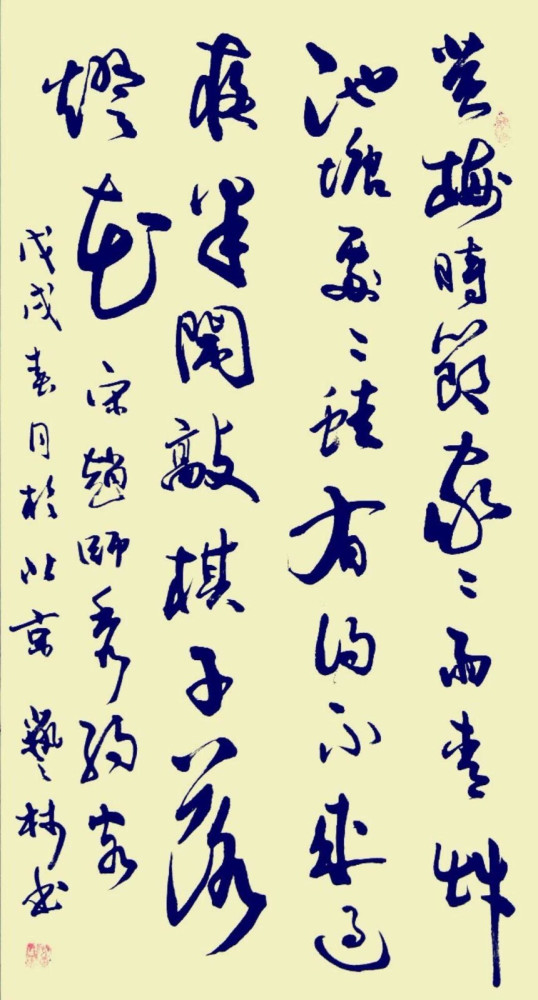 黄梅時節家〻雨青艸
池塘處〻蛙有約不來過
夜半閑敲棋子落
燈花 宋趙師秀約客
戊戌春月於北京 藝林書